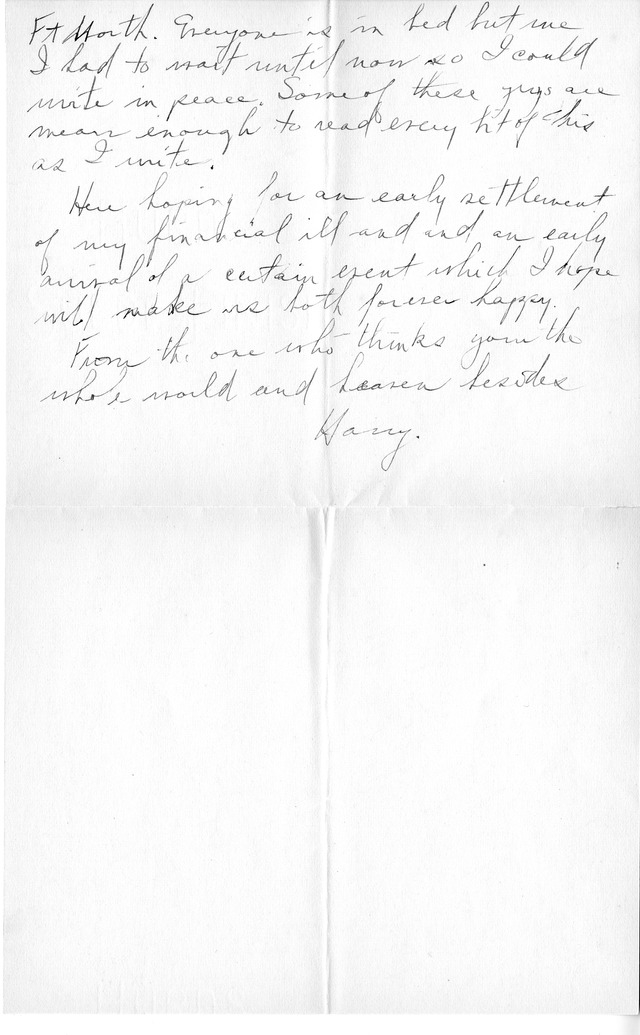 Ft Worth. Everyone is in bed but me
I had to wait until now so I could
write in peace. Some of these guys are
mean enough to read every bit of this
as I write.
Here hoping for an early settlement
of my financial ill and and an early
arrival of a certain event which I hope
will make us both forever happy.
From the one who thinks your the
whole world and heaven besides
Harry.